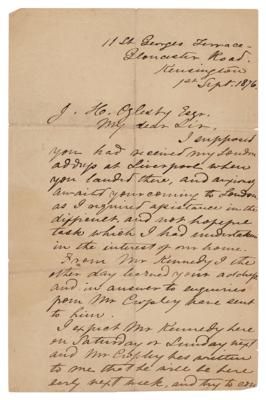 11 St. Georges Terrace -
Gloucester Road.
Kensington
1st Sept. 1876.
J. H. Oglesby Esqr.
My dear Sir,
I supposed
you had received my London
address at Liverpool when
you landed there, and anxiously
awaited your coming to London
as I required assistance in the
difficult, and not hopeful
task which I had undertaken
in the interest of our home.
From Mr Kennedy I the
other day learned your address
and in answer to enquiries
from Mr Cropley have sent
to him.
I expect Mr Kennedy here
on Saturday or Sunday next
and Mr Cropley has written
to me that he will be here
early next week, and try to